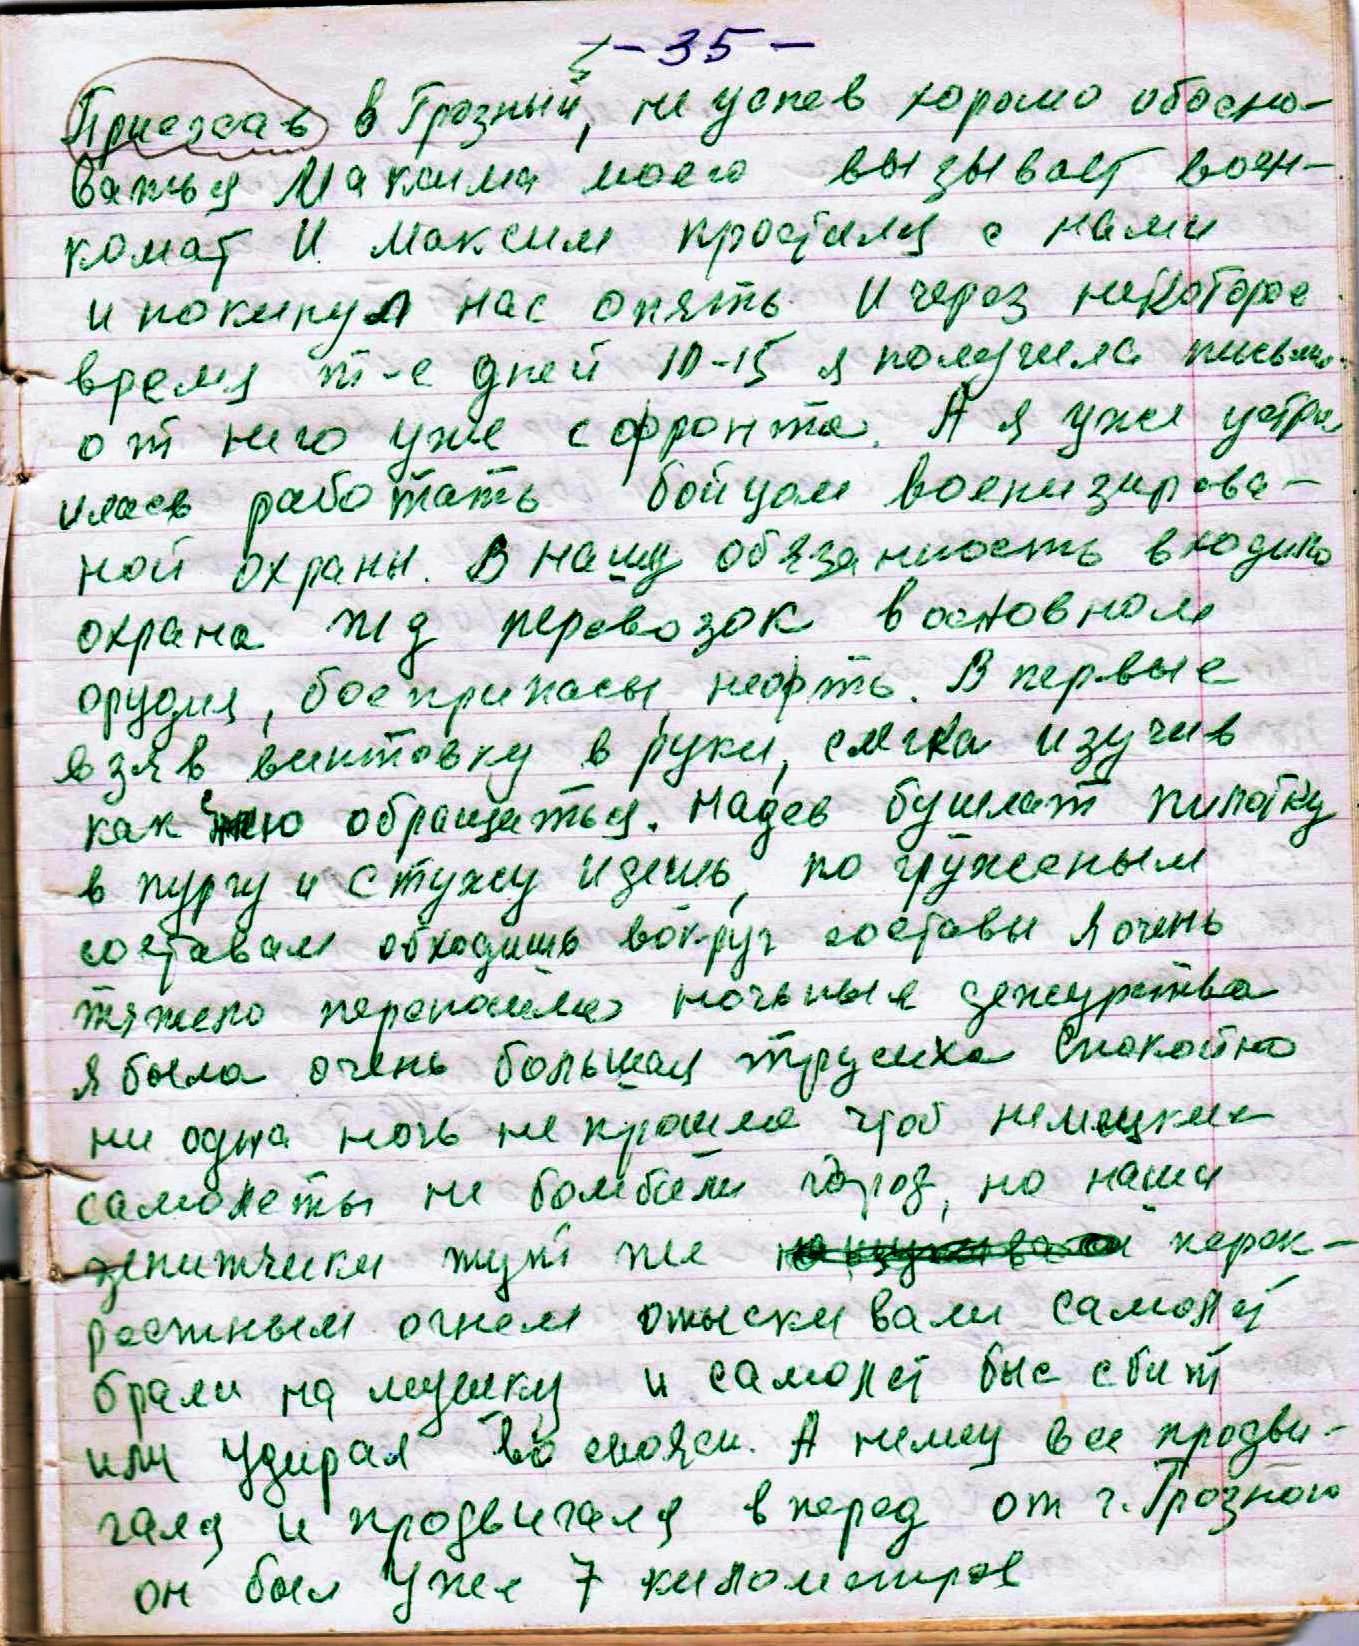 - 35 -
Приезжав в Грозный, не успев хорошо обосно-
ваться Максима моего вызывает воен-
комат И Максим простился с нами
и покинул нас опять. И через некоторое
время т-е дней 10-15 я получила письмо
от него уже с фронта. А я уже устро
илась работать бойцом военизирова-
ной охраны. В нашу обязанность входило
охрана жд перевозок в основном
орудия, боеприпасы, нефть. В первые
взяв винтовку в руки, слегка изучив
как с нею обращаться. Надев бушлат пилотку
в пургу и стужу идешь, по груженым
составам обходишь вокруг составы Я очень
тяжело переносила ночьные дежурства
Я была очень большая трусиха Спокойно
ни одна ночь не прошла чтоб немецкие
самолеты не бомбили город, но наши
зенитчики тут же перек-
рестным огнем отыскивали самолет
брали на мушку и самолет был сбит
или удирал во свояси. А немец все продви-
гался и продвигался вперед от г. Грозного
он был уже 7 километров